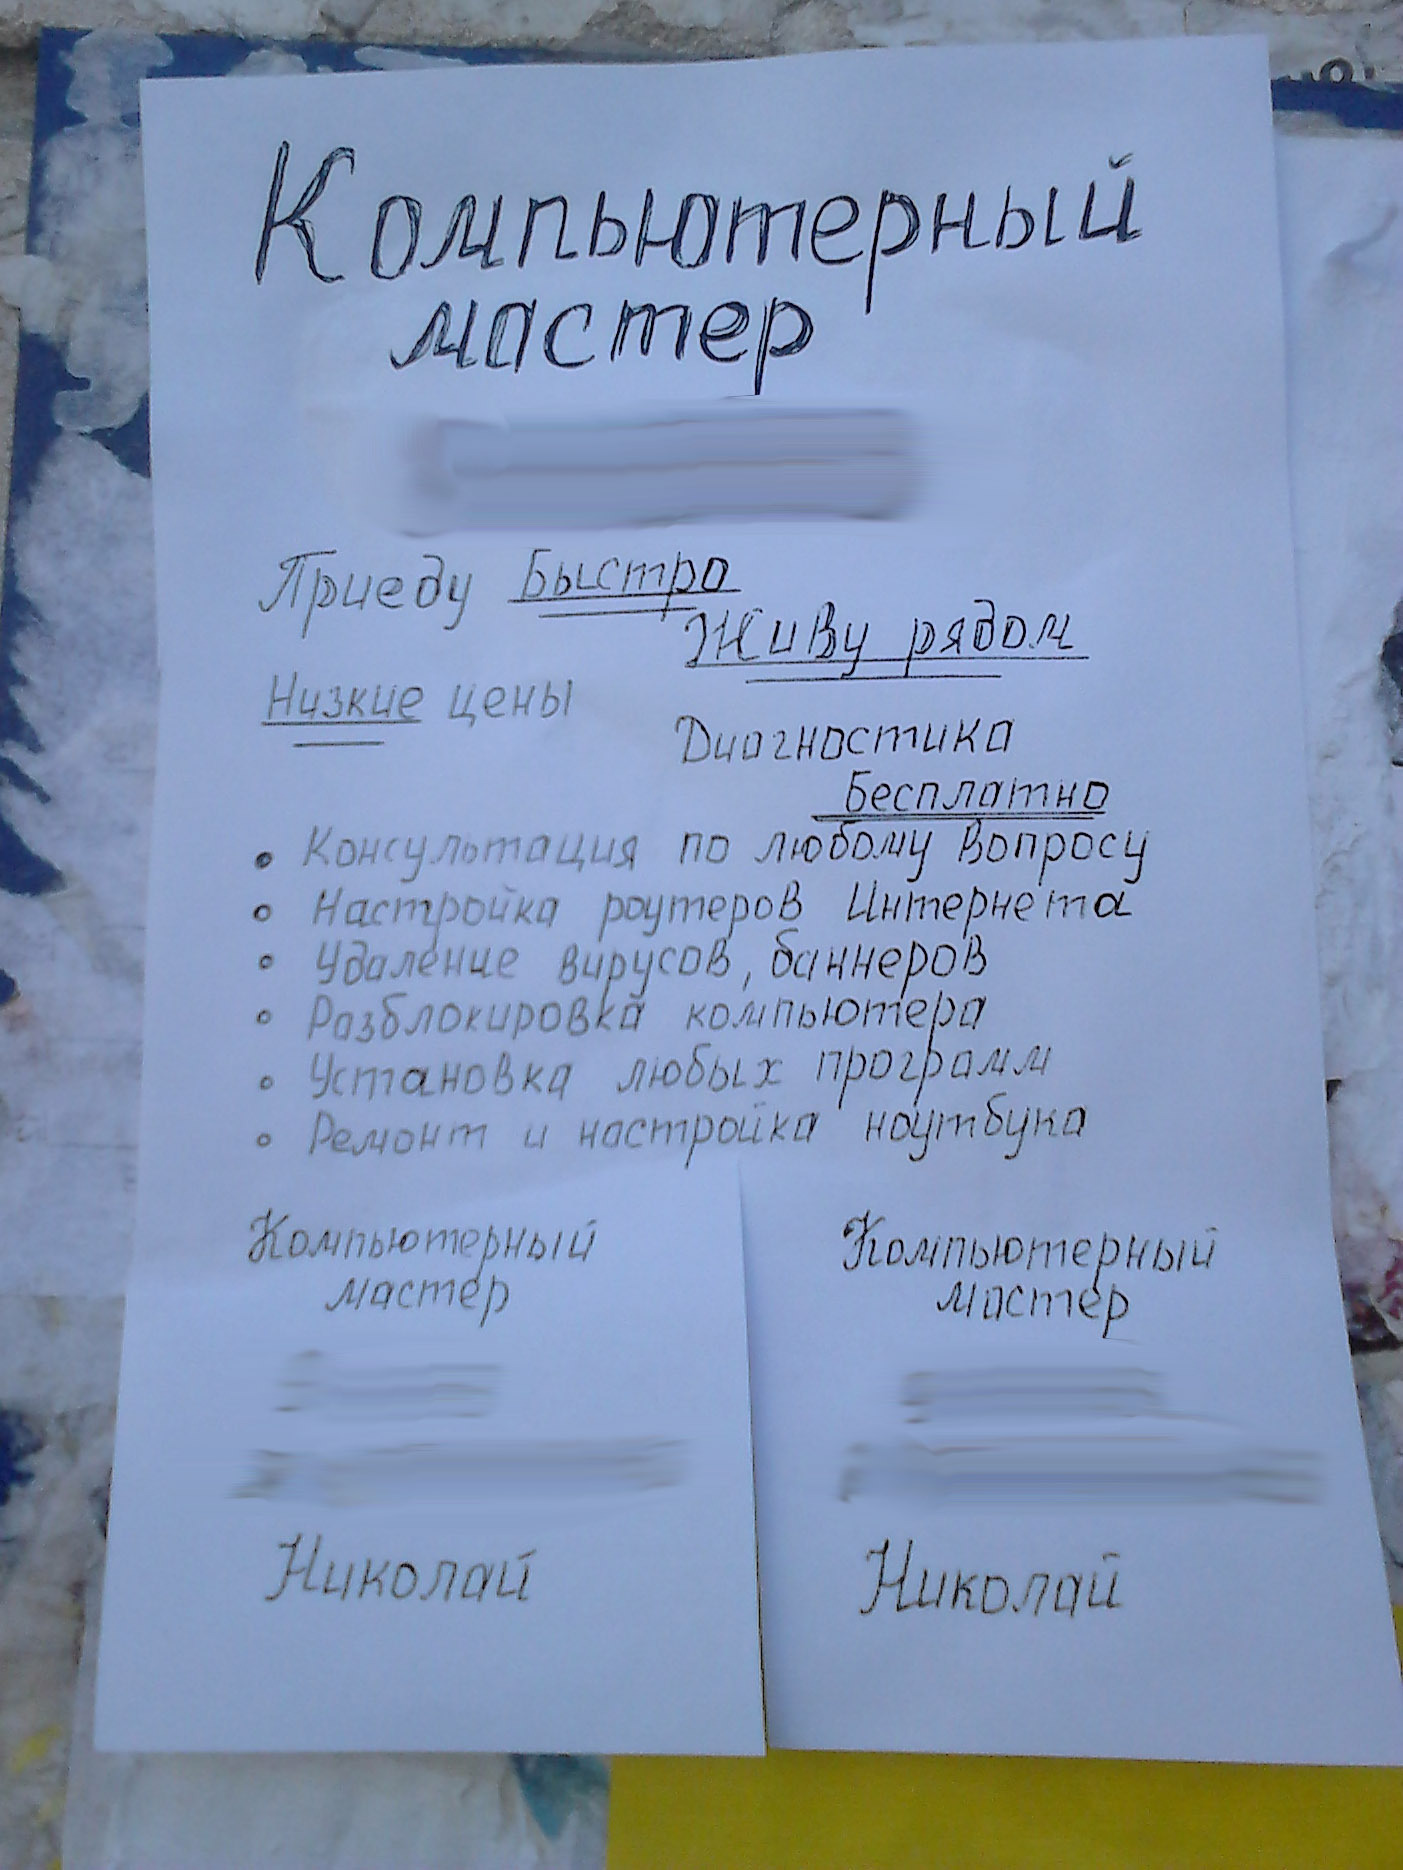 Компьютерный
мастер
Приеду Быстро
Живу рядом
Низкие цены
Диагностика
Бесплатно
• Консультация по любому вопросу
• Настройка роутеров Интернета
• Удаление вирусов, баннеров
• Разблокировка компьютера
• Установка любых программ
• Ремонт и настройка ноутбука
Компьютерный
мастер
Николай
Компьютерный
мастер
Николай